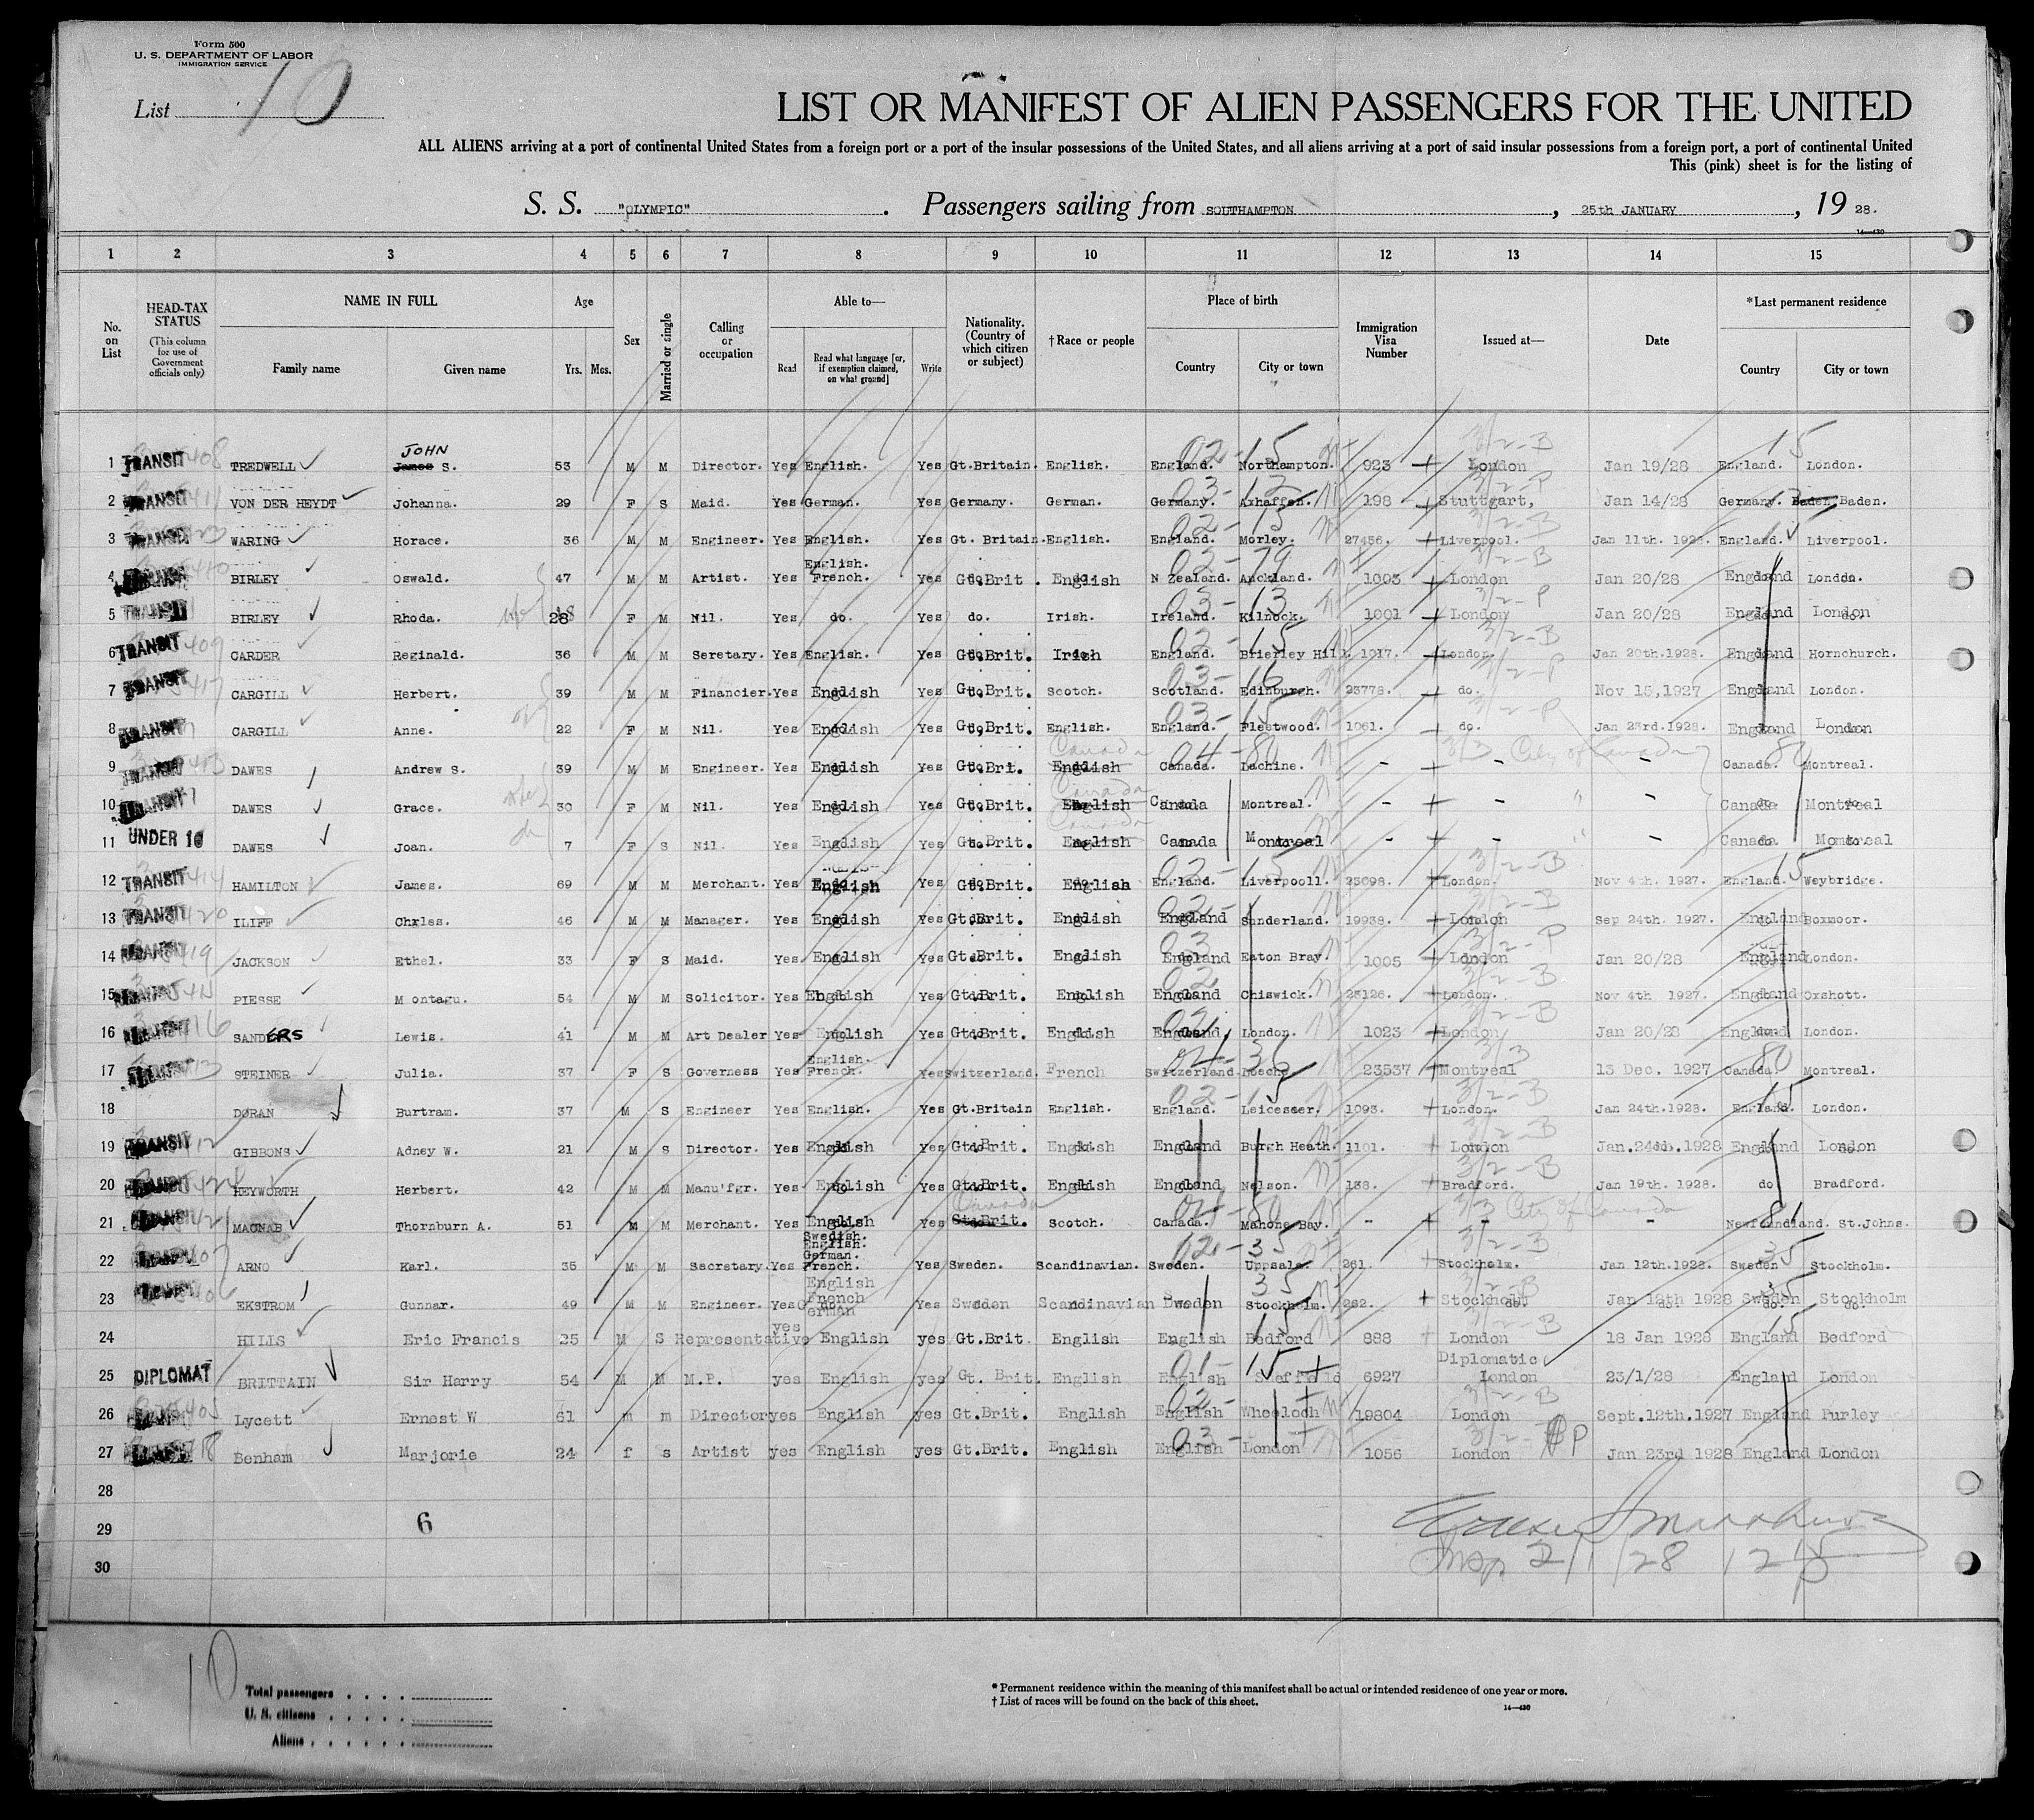 Form 500
U. S. DEPARTMENT OF LABOR
IMMIGRATION SERVICE
List 10
LIST OR MANIFEST OF ALIEN PASSENGERS FOR THE UNITED
ALL ALIENS arriving at a port of continental United States from a foreign port or a port of the insular possessions of the United States, and all aliens arriving at a port of said insular possessions from a foreign port, a port of continental United
This (pink) sheet is for the listing of
S. S. "OLYMPIC". Passengers sailing from SOUTHAMPTON, 25th JANUARY, 19 28.
14—430
1 2 3 4 5 6 7 8 9 10 11 12 13 14 15
No. on List
HEAD-TAX STATUS (This column for use of Government officials only)
NAME IN FULL Family name Given name
Age Yrs. Mos.
Sex
Married or single
Calling or occupation
Able to— Read Read what language [or, if exemption claimed, on what ground] Write
Nationality. (Country of which citizen or subject)
†Race or people
Place of birth Country City or town
Immigration Visa Number
Issued at—
Date
*Last permanent residence Country City or town
1 TRANSIT TREDWELL JOHN James S. 53 M M Director. Yes English. Yes Gt.Britain. English. England. Northampton. 923 London Jan 19/28 England. London.
2 TRANSIT VON DER HEYDT Johanna. 29 F S Maid. Yes German. Yes Germany. German. Germany. Axhaffen. 198 Stuttgart, Jan 14/28 Germany. Baden Baden.
3 TRANSIT WARING Horace. 36 M M Engineer. Yes English. Yes Gt. Britain. English. England. Morley. 27456. Liverpool. Jan 11th. 1928. England. Liverpool.
4 BIRLEY Oswald. 47 M M Artist. Yes English. French. Yes Gt.Brit. English N Zealand. Auckland. 1003 London Jan 20/28 England London.
5 TRANSIT BIRLEY Rhoda. 28 F M Nil. Yes do. Yes do. Irish. Ireland. Kilnock. 1001 London Jan 20/28 England London
6 TRANSIT CARDER Reginald. 36 M M Seretary. Yes English. Yes Gt.Brit. Irish England. Brierley Hill. 1017. London. Jan 20th.1928. England Hornchurch.
7 TRANSIT CARGILL Herbert. 39 M M Financier. Yes English Yes Gt.Brit. Scotch. Scotland. Edinburgh. 23778. do. Nov 15,1927 England London.
8 TRANSIT CARGILL Anne. 22 F M Nil. Yes English Yes Gt.Brit. English. England. Fleetwood. 1061. do. Jan 23rd.1928. England London
9 TRANSIT DAWES Andrew S. 39 M M Engineer. Yes English Yes Gt.Bri. English Canada Canada. Lachine. - - City of Canada - Canada. Montreal.
10 TRANSIT DAWES Grace. 30 F M Nil. Yes English Yes Gt.Brit. English Canada Canada Montreal. - - " - Canada Montreal
11 UNDER 16 DAWES Joan. 7 F S Nil. Yes English Yes Gt.Brit. English Canada Canada Montreal - - " - Canada. Montreal
12 TRANSIT HAMILTON James. 69 M M Merchant. Yes English Yes Gt.Brit. English England. Liverpooll. 23098. London. Nov 4th. 1927. England. Weybridge.
13 TRANSIT ILIFF Chrles. 46 M M Manager. Yes English Yes Gt.Brit. English England Sunderland. 19938. London Sep 24th. 1927. England Boxmoor.
14 TRANSIT JACKSON Ethel. 33 F S Maid. Yes English Yes Gt.Brit. English England Eaton Bray. 1005 London Jan 20/28 England London.
15 PIESSE Montagu. 54 M M Solicitor. Yes English Yes Gt.Brit. English England Chiswick. 23126. London. Nov 4th 1927. England Oxshott.
16 TRANSIT SANDERS Lewis. 41 M M Art Dealer Yes English Yes Gt.Brit. English England. London. 1023 London Jan 20/28 England London.
17 STEINER Julia. 37 F S Governess Yes English. French. Yes Switzerland. French Switzerland. 23537 Montreal 13 Dec. 1927 Canada. Montreal.
18 DORAN Burtram. 37 M S Engineer Yes English. Yes Gt.Britain English. England. Leicester. 1093. London. Jan 24th.1928. England. London.
19 TRANSIT GIBBONS Adney W. 21 M S Director. Yes English Yes Gt.Brit. English England Burgh Heath. 1101. London Jan. 24th.1928 England London
20 TRANSIT HEYWORTH Herbert. 42 M M Manu'fgr. Yes English Yes Gt.Brit. English England Nelson. 138. Bradford. Jan 19th. 1928. do Bradford.
21 TRANSIT MACNAB Thornburn A. 51 M M Merchant. Yes English Yes Gt.Brit. Canada Scotch. Canada. Mahone Bay. - - City of Canada - Newfoundland. St.Johns.
22 ARNO Karl. 35 M M Secretary. Yes Swedish. English. German. French. Yes Sweden. Scandinavian. Sweden. Uppsala. 261. Stockholm. Jan 12th.1928. Sweden Stockholm.
23 EKSTROM Gunnar. 49 M M Engineer. Yes English French German Yes Sweden Scandinavian Sweden Stockholm. 262. Stockholm Jan 12th 1928 Sweden Stockholm
24 HILLS Eric Francis 25 M S Representative yes English yes Gt.Brit. English English Bedford 888 London 18 Jan 1928 England Bedford
25 DIPLOMAT BRITTAIN Sir Harry 54 M M M.P. yes English yes Gt. Brit. English English Sheffield 6927 Diplomatic London 23/1/28 England London
26 Lycett Ernest W 61 m m Director yes English yes Gt.Brit. English English Wheeloch 19804 London Sept.12th.1927 England Purley
27 Benham Marjorie 24 f s Artist yes English yes Gt.Brit. English English London 1056 London Jan 23rd 1928 England London
28
29 6
30
10
Total passengers
U. S. citizens
Aliens
* Permanent residence within the meaning of this manifest shall be actual or intended residence of one year or more.
† List of races will be found on the back of this sheet.
14—430